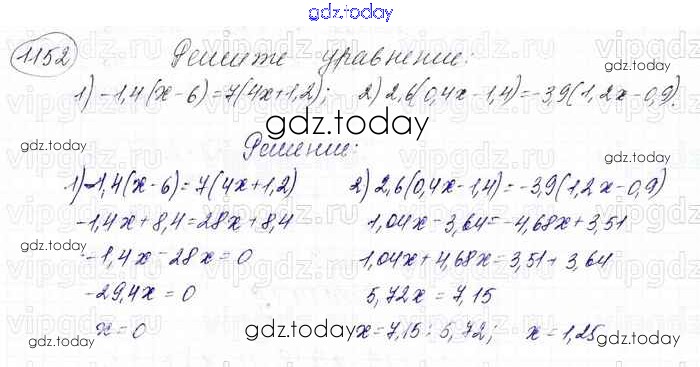 gdz.today
1152 Решите уравнение:
1) -1,4(x-6)=7(4x+1,2); 2) 2,6(0,4x-1,4)=-3,9(1,2x-0,9).
Решение:
1) -1,4(x-6)=7(4x+1,2)
-1,4x+8,4=28x+8,4
-1,4x-28x=0
-29,4x=0
x=0
2) 2,6(0,4x-1,4)=-3,9(1,2x-0,9)
1,04x-3,64=-4,68x+3,51
1,04x+4,68x=3,51+3,64
5,72x=7,15
x=7,15:5,72; x=1,25
gdz.today
gdz.today
gdz.today
gdz.today
gdz.today
gdz.today
gdz.today